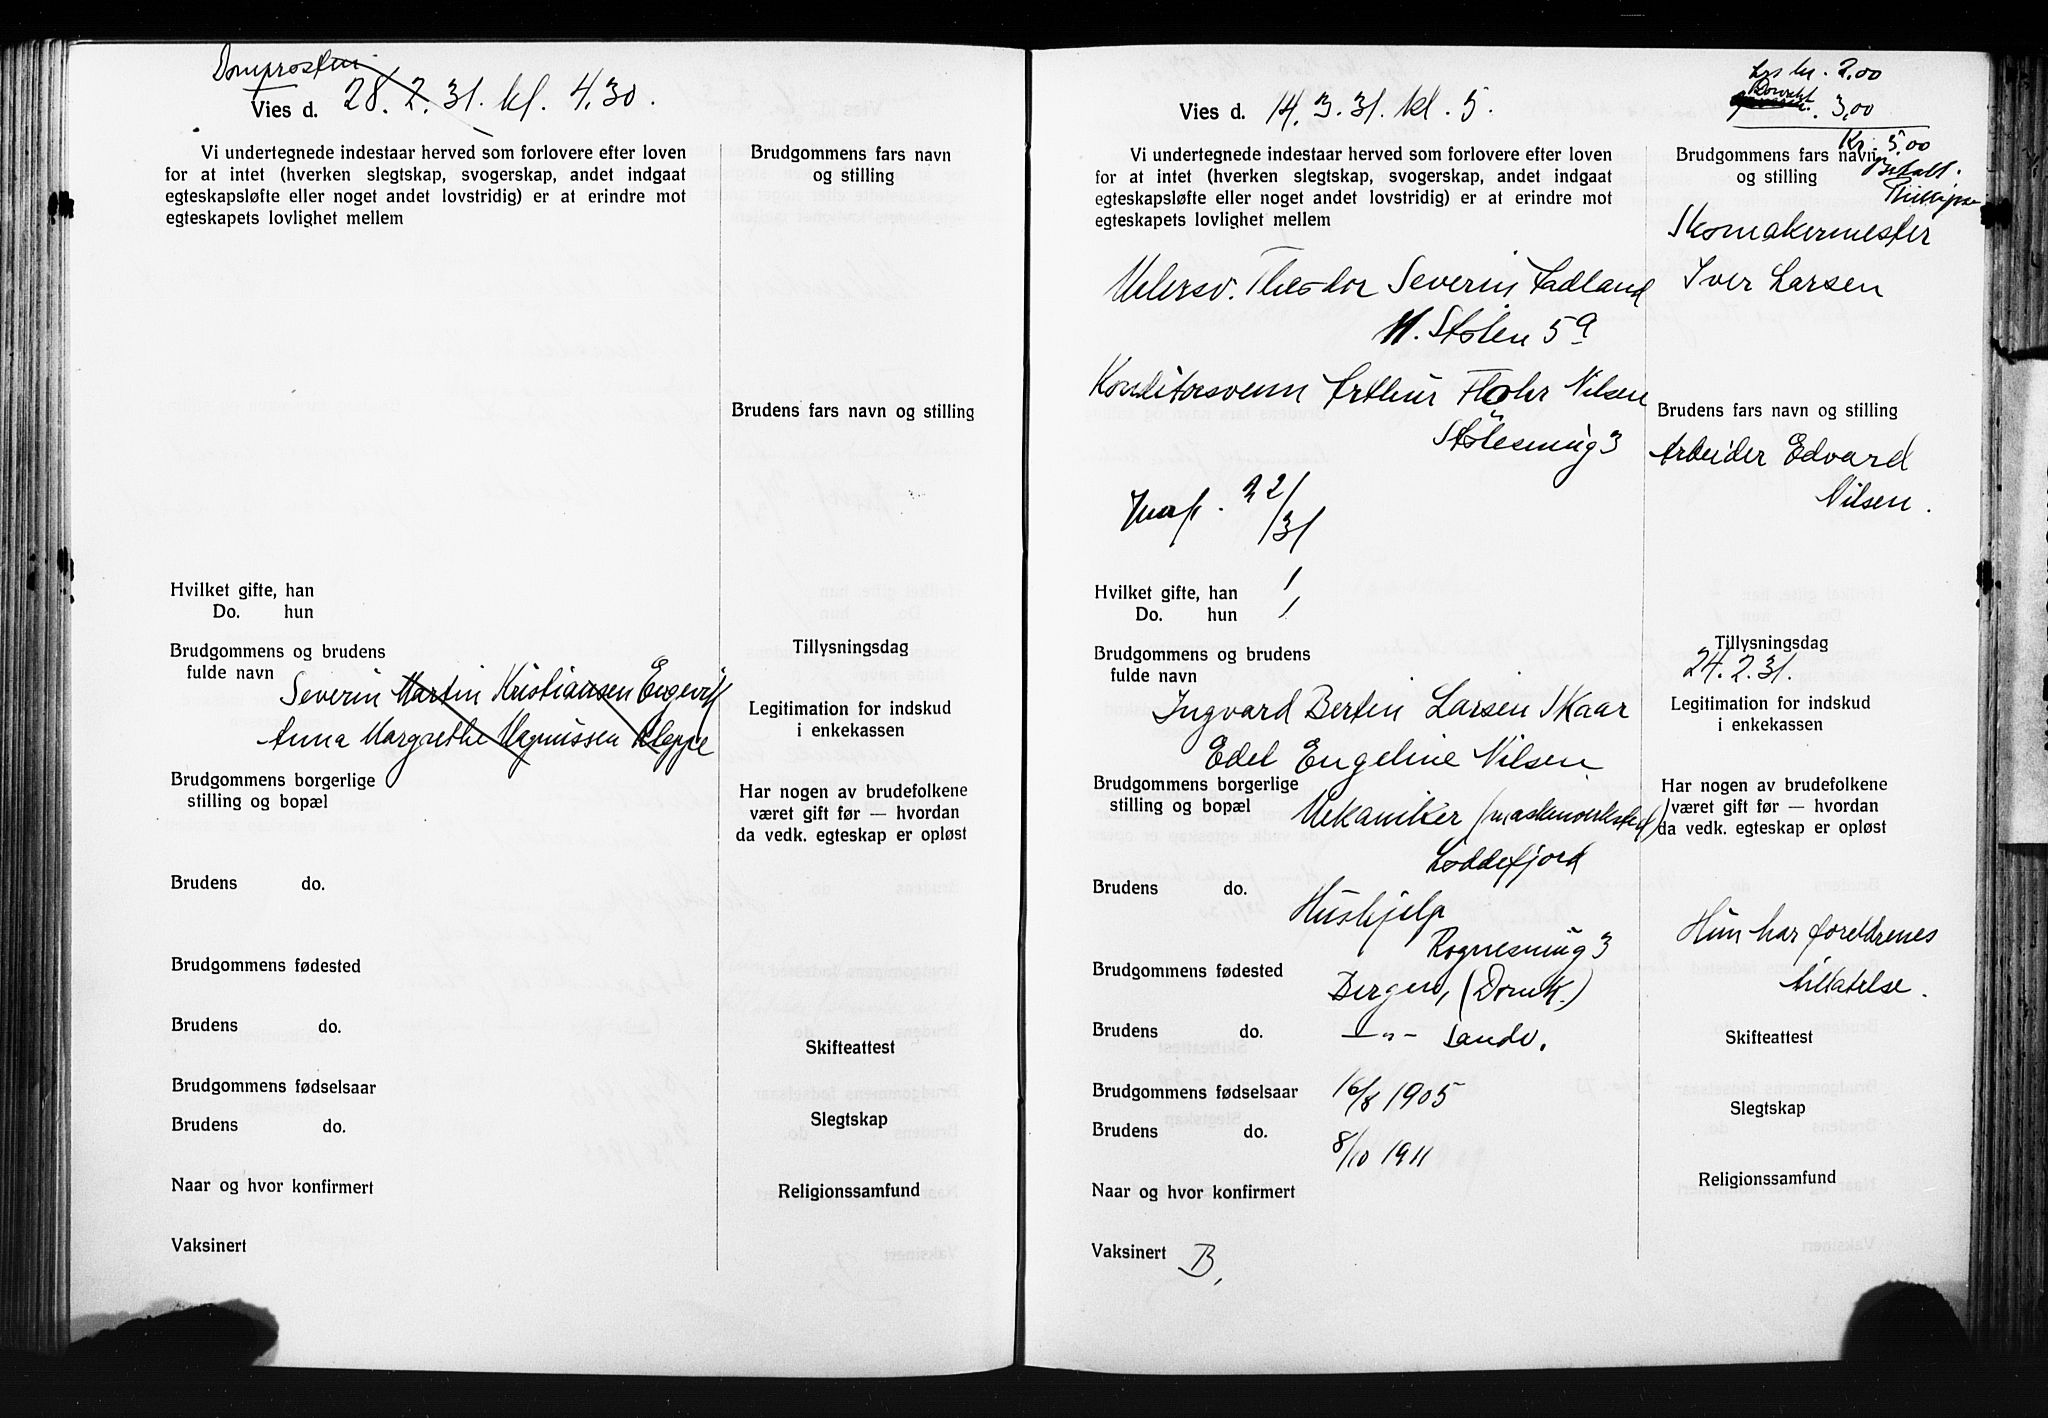 Domprosten
Vies d. 28. 2. 31. kl. 4.30.
Vi undertegnede indestaar herved som forlovere efter loven
for at intet (hverken slegtskap, svogerskap, andet indgaat
egteskapsløfte eller noget andet lovstridig) er at erindre mot
egteskapets lovlighet mellem
Brudgommens fars navn
og stilling
Brudens fars navn og stilling
Hvilket gifte, han
Do. hun
Brudgommens og brudens
fulde navn
Severin Martin Kristiansen Engevik
Anna Margrethe Magnussen Kleppe
Tillysningsdag
Legitimation for indskud
i enkekassen
Brudgommens borgerlige
stilling og bopæl
Har nogen av brudefolkene
været gift før — hvordan
da vedk. egteskap er opløst
Brudens do.
Brudgommens fødested
Brudens do.
Skifteattest
Brudgommens fødselsaar
Brudens do.
Slegtskap
Naar og hvor konfirmert
Religionssamfund
Vaksinert
Vies d. 14. 3. 31. kl. 5.
2.00
3,00
Kr. 5.00
Betalt.
Vi undertegnede indestaar herved som forlovere efter loven
for at intet (hverken slegtskap, svogerskap, andet indgaat
egteskapsløfte eller noget andet lovstridig) er at erindre mot
egteskapets lovlighet mellem
Brudgommens fars navn
og stilling
Skomakermester
Iver Larsen
Malersv. Theodor Severin Fadland
N. Stølen 5a
Konditorsvenn Arthur Flohr Nilsen
Stølesmug 3
Brudens fars navn og stilling
Arbeider Edvard
Nilsen.
22/
/31
Hvilket gifte, han 1
Do. hun 1
Brudgommens og brudens
fulde navn
Ingvard Bertin Larsen Skaar
Edel Engeline Nilsen
Tillysningsdag
24.2.31.
Legitimation for indskud
i enkekassen
Brudgommens borgerlige
stilling og bopæl
Mekaniker (maskinverksted)
Loddefjord
Har nogen av brudefolkene
været gift før — hvordan
da vedk. egteskap er opløst
Brudens do.
Hushjelp
Rognesmug 3
Hun har foreldrenes
tillatelse.
Brudgommens fødested
Bergen, (Domk.)
Brudens do. —„— Sandv.
Skifteattest
Brudgommens fødselsaar 16/8 1905
Brudens do. 8/10 1911
Slegtskap
Naar og hvor konfirmert
Religionssamfund
Vaksinert B,